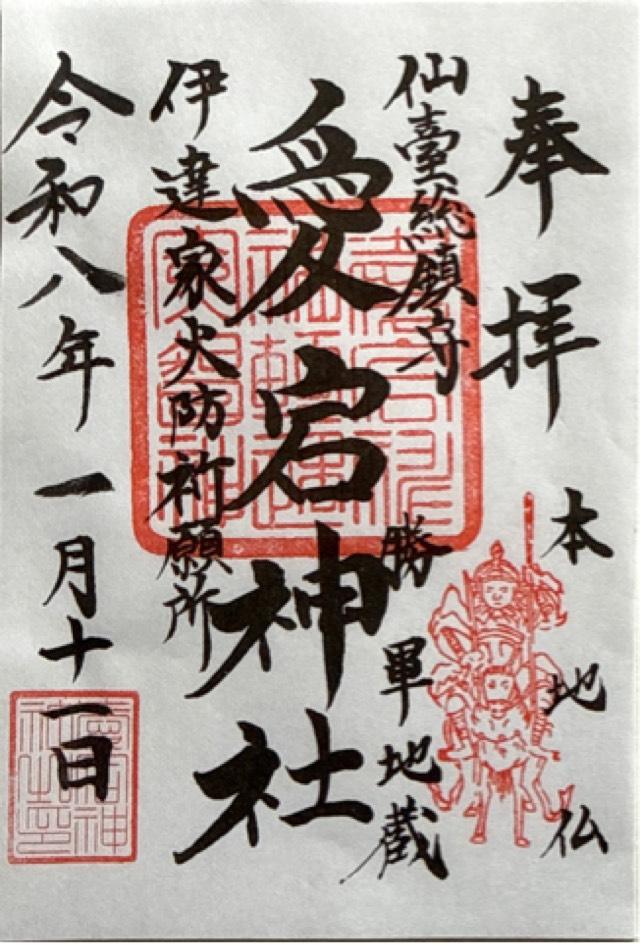 奉拝
本地仏
仙臺総鎮守
勝軍地蔵
愛宕神社
伊達家火防祈願所
令和八年一月十一日